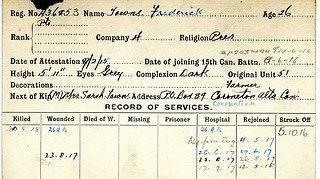 Reg. No. 436853 Name Tewas, Frederick Age 26
Pte
Rank Company 4 Religion Pres.
Date of Attestation Date of joining 15th Can. Battn. 8-6-16
Height 5' 11" Eyes Grey Complexion Dark Original Unit 51
Decorations Farmer
Next of Kin (M) Mrs. Sarah Address P.O. Box 89 Coronation Alta Can
Coronation
RECORD OF SERVICES.
Killed Wounded Died of W. Missing Prisoner Hospital Rejoined Struck Off
30.8.18 26.9.16 26.9.16 5.10.16
Rep. from Eng 4-5-17
26-6-17 29-6-17
23-8-17 23-8-17 26-8-17